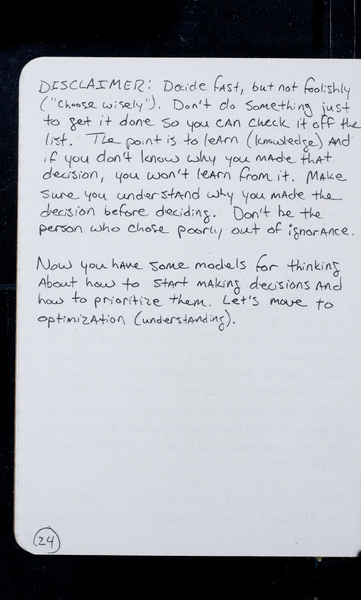 DISCLAIMER: Decide fast, but not foolishly
("choose wisely"). Don't do something just
to get it done so you can check it off the
list. The point is to learn (knowledge) and
if you don't know why you made that
decision, you won't learn from it. Make
sure you understand why you made the
decision before deciding. Don't be the
person who chose poorly out of ignorance.
Now you have some models for thinking
about how to start making decisions and
how to prioritize them. Let's move to
optimization (understanding).
24